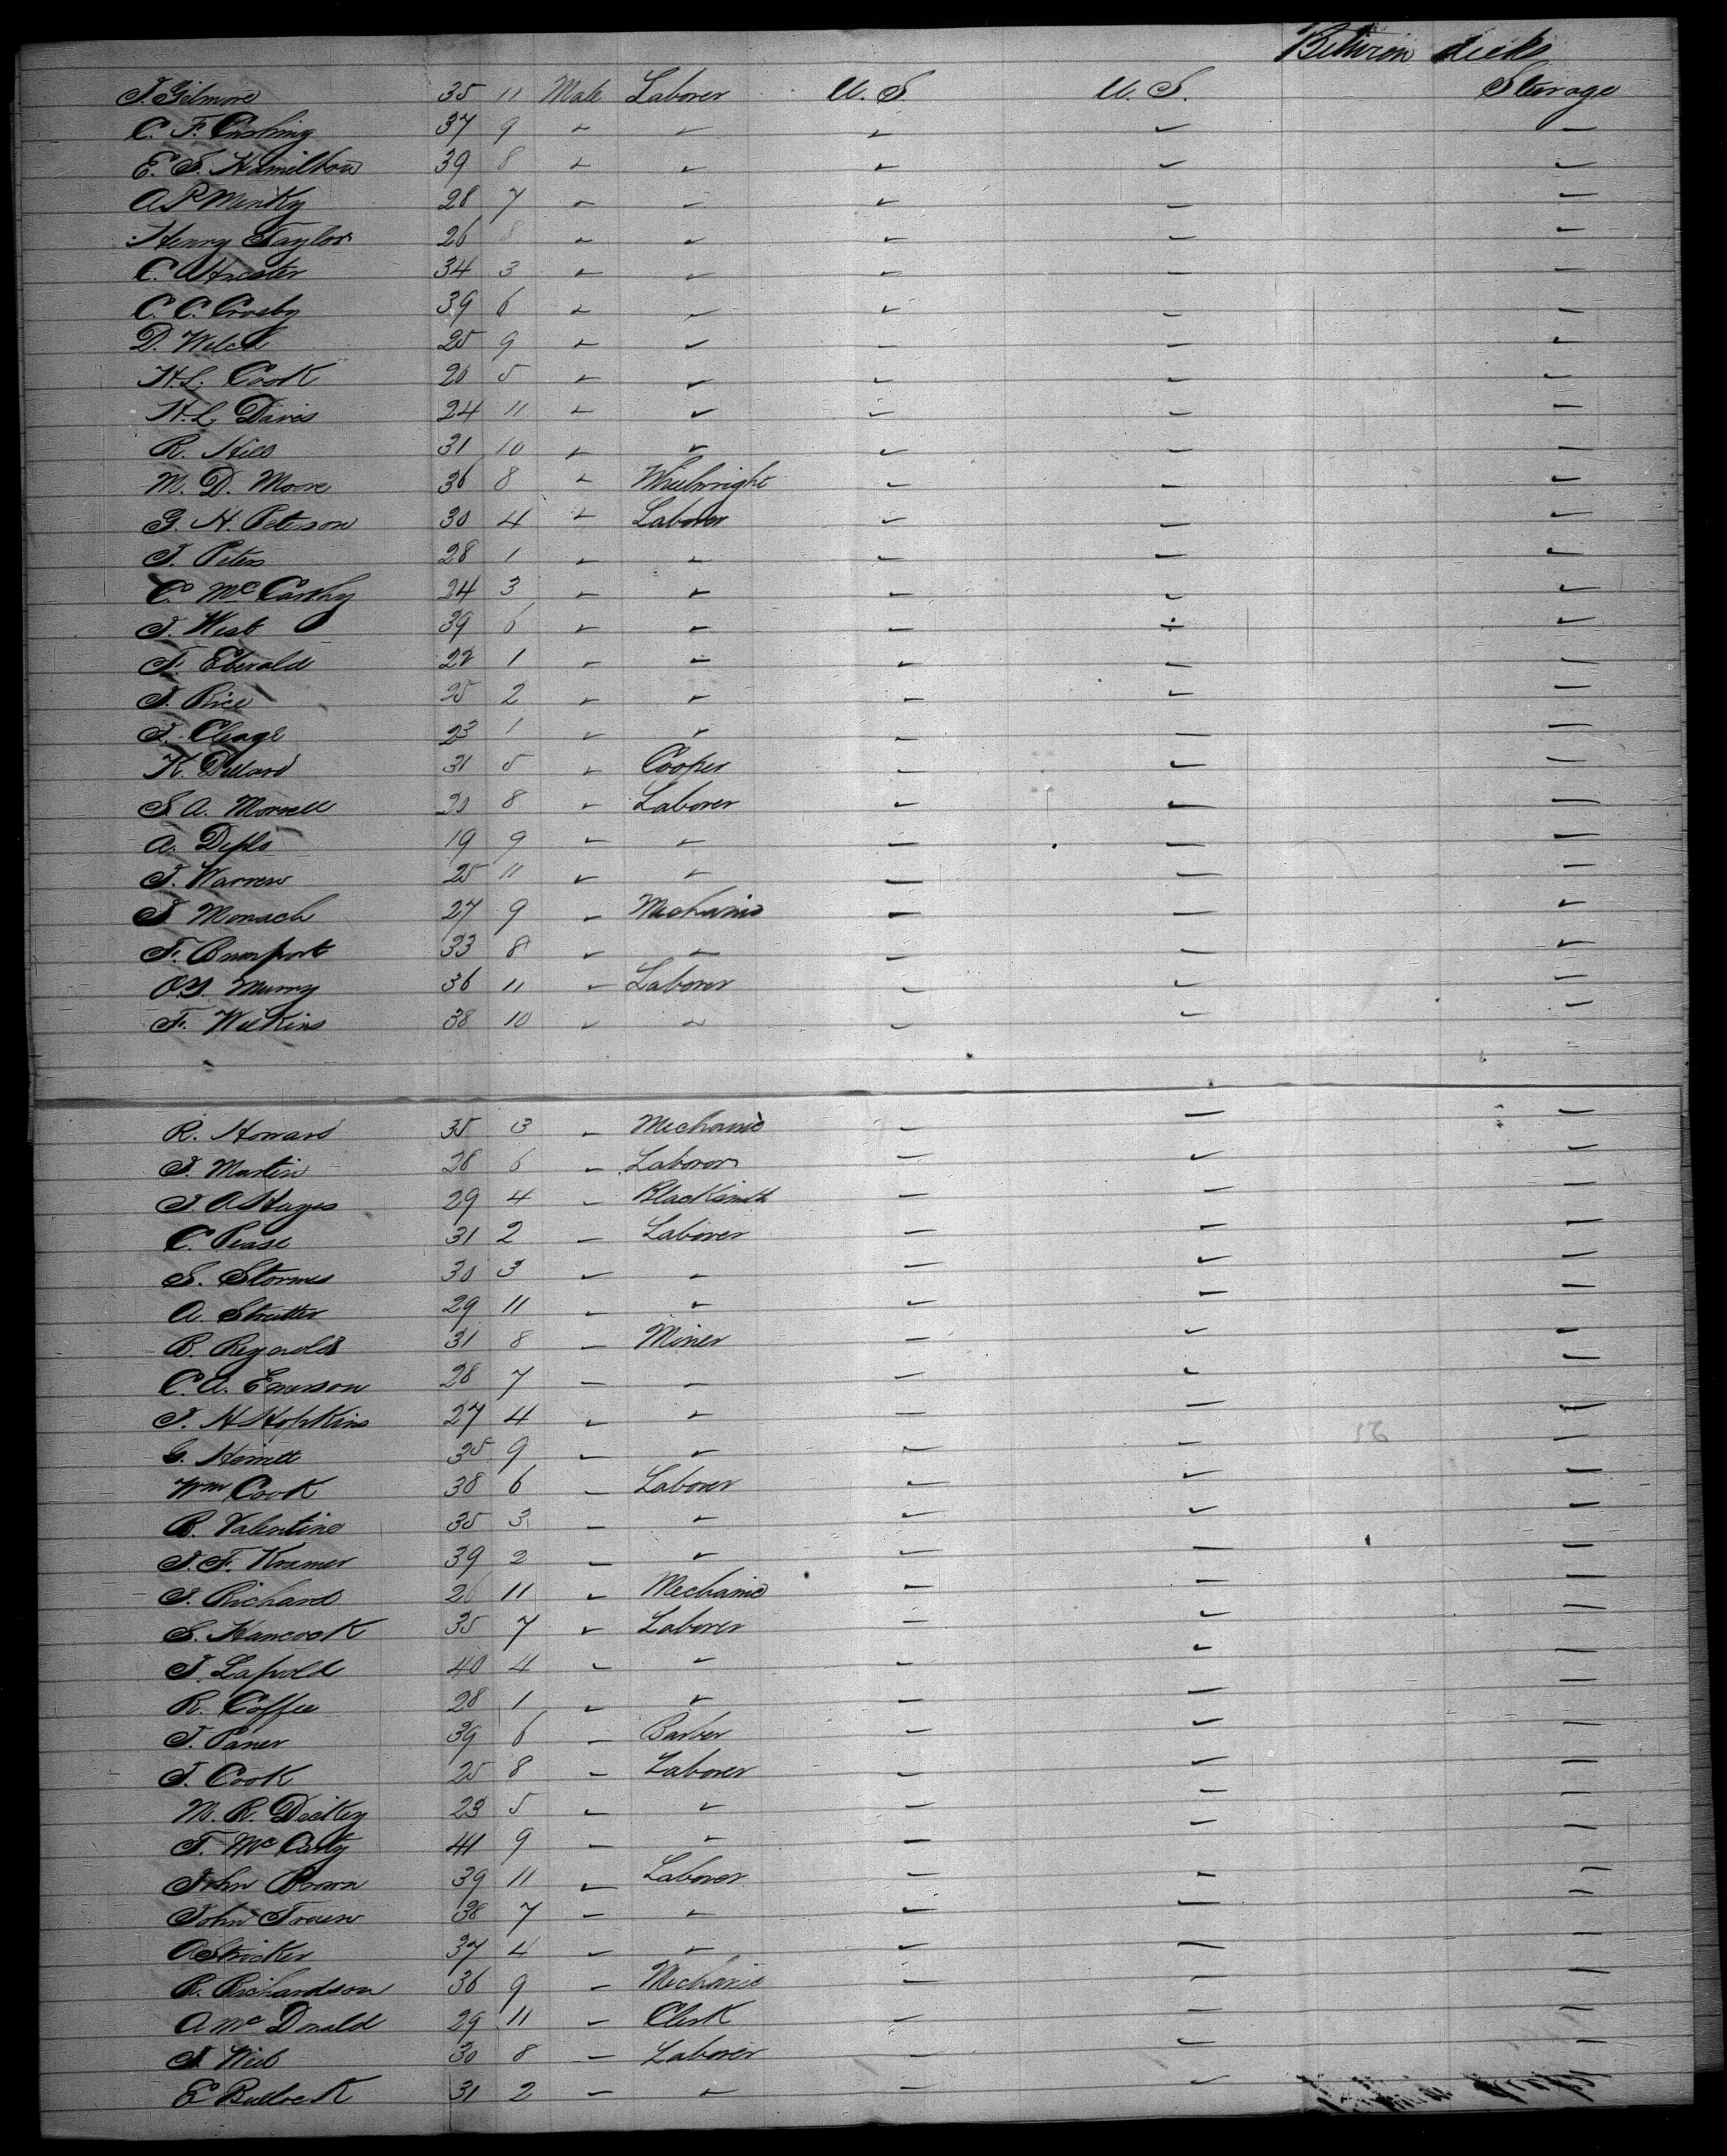 Between decks
J. Gilmore 35 11 Male Laborer U. S. U. S. Sterage
C. F. Cushing 37 9 " " " " "
E. S. Hamilton 39 8 " " " " "
A P Menky 28 7 " " " " "
Henry Taylor 26 8 " " " " "
C. 34 3 " " " " "
C. C. Crosby 39 6 " " " " "
D. Welch 25 9 " " " " "
H. L. Cook 20 5 " " " " "
H. L. Davis 24 11 " " " " "
R. Hill 31 10 " " " " "
M. D. Moore 36 8 " Wheelwright " " "
G. H. Peterson 30 4 " Laborer " " "
J. Peters 28 1 " " " " "
C. McCarthy 24 3 " " " " "
J. West 39 6 " " " " "
F. Eberald 22 1 " " " " "
J. Rice 25 2 " " " " "
J. Cleage 23 1 " " " " "
K. Dillard 31 5 " Cooper " " "
S. A. Morrell 20 8 " Laborer " " "
A. 19 9 " " " " "
J. Warren 25 11 " " " " "
J Monach 27 9 " Mechanic " " "
F. 33 8 " " " " "
O. Y. Murry 36 11 " Laborer " " "
F. Wilkins 38 10 " " " " "
R. Howard 35 3 " Mechanic " " "
J. Martin 28 6 " Laborer " " "
J. A Hayes 29 4 " Blacksmith " " "
C. Pease 31 2 " Laborer " " "
S. Stormes 30 3 " " " " "
A. Streitter 29 11 " " " " "
B. Reynolds 31 8 " Miner " " "
C. A. Emerson 28 7 " " " " "
J. H Hopkins 27 4 " " " " "
G. Hewett 35 9 " " " " "
Wm Cook 38 6 " Laborer " " "
B. Valentine 35 3 " " " " "
J. F. Kramer 39 2 " " " " "
J. Richard 26 11 " Mechanic " " "
S. Hancock 35 7 " Laborer " " "
J. Lapold 40 4 " " " " "
R. Coffee 28 1 " " " " "
J. Paner 39 6 " Barber " " "
J. Cook 25 8 " Laborer " " "
M. R. Dickey 23 5 " " " " "
T. McCarty 41 9 " " " " "
John Brown 39 11 " Laborer " " "
John 38 7 " " " " "
A Stricker 37 4 " " " " "
R. Richardson 36 9 " Mechanic " " "
A McDonald 29 11 " Clerk " " "
J. 30 8 " Laborer " " "
E Bullock 31 2 " " " "